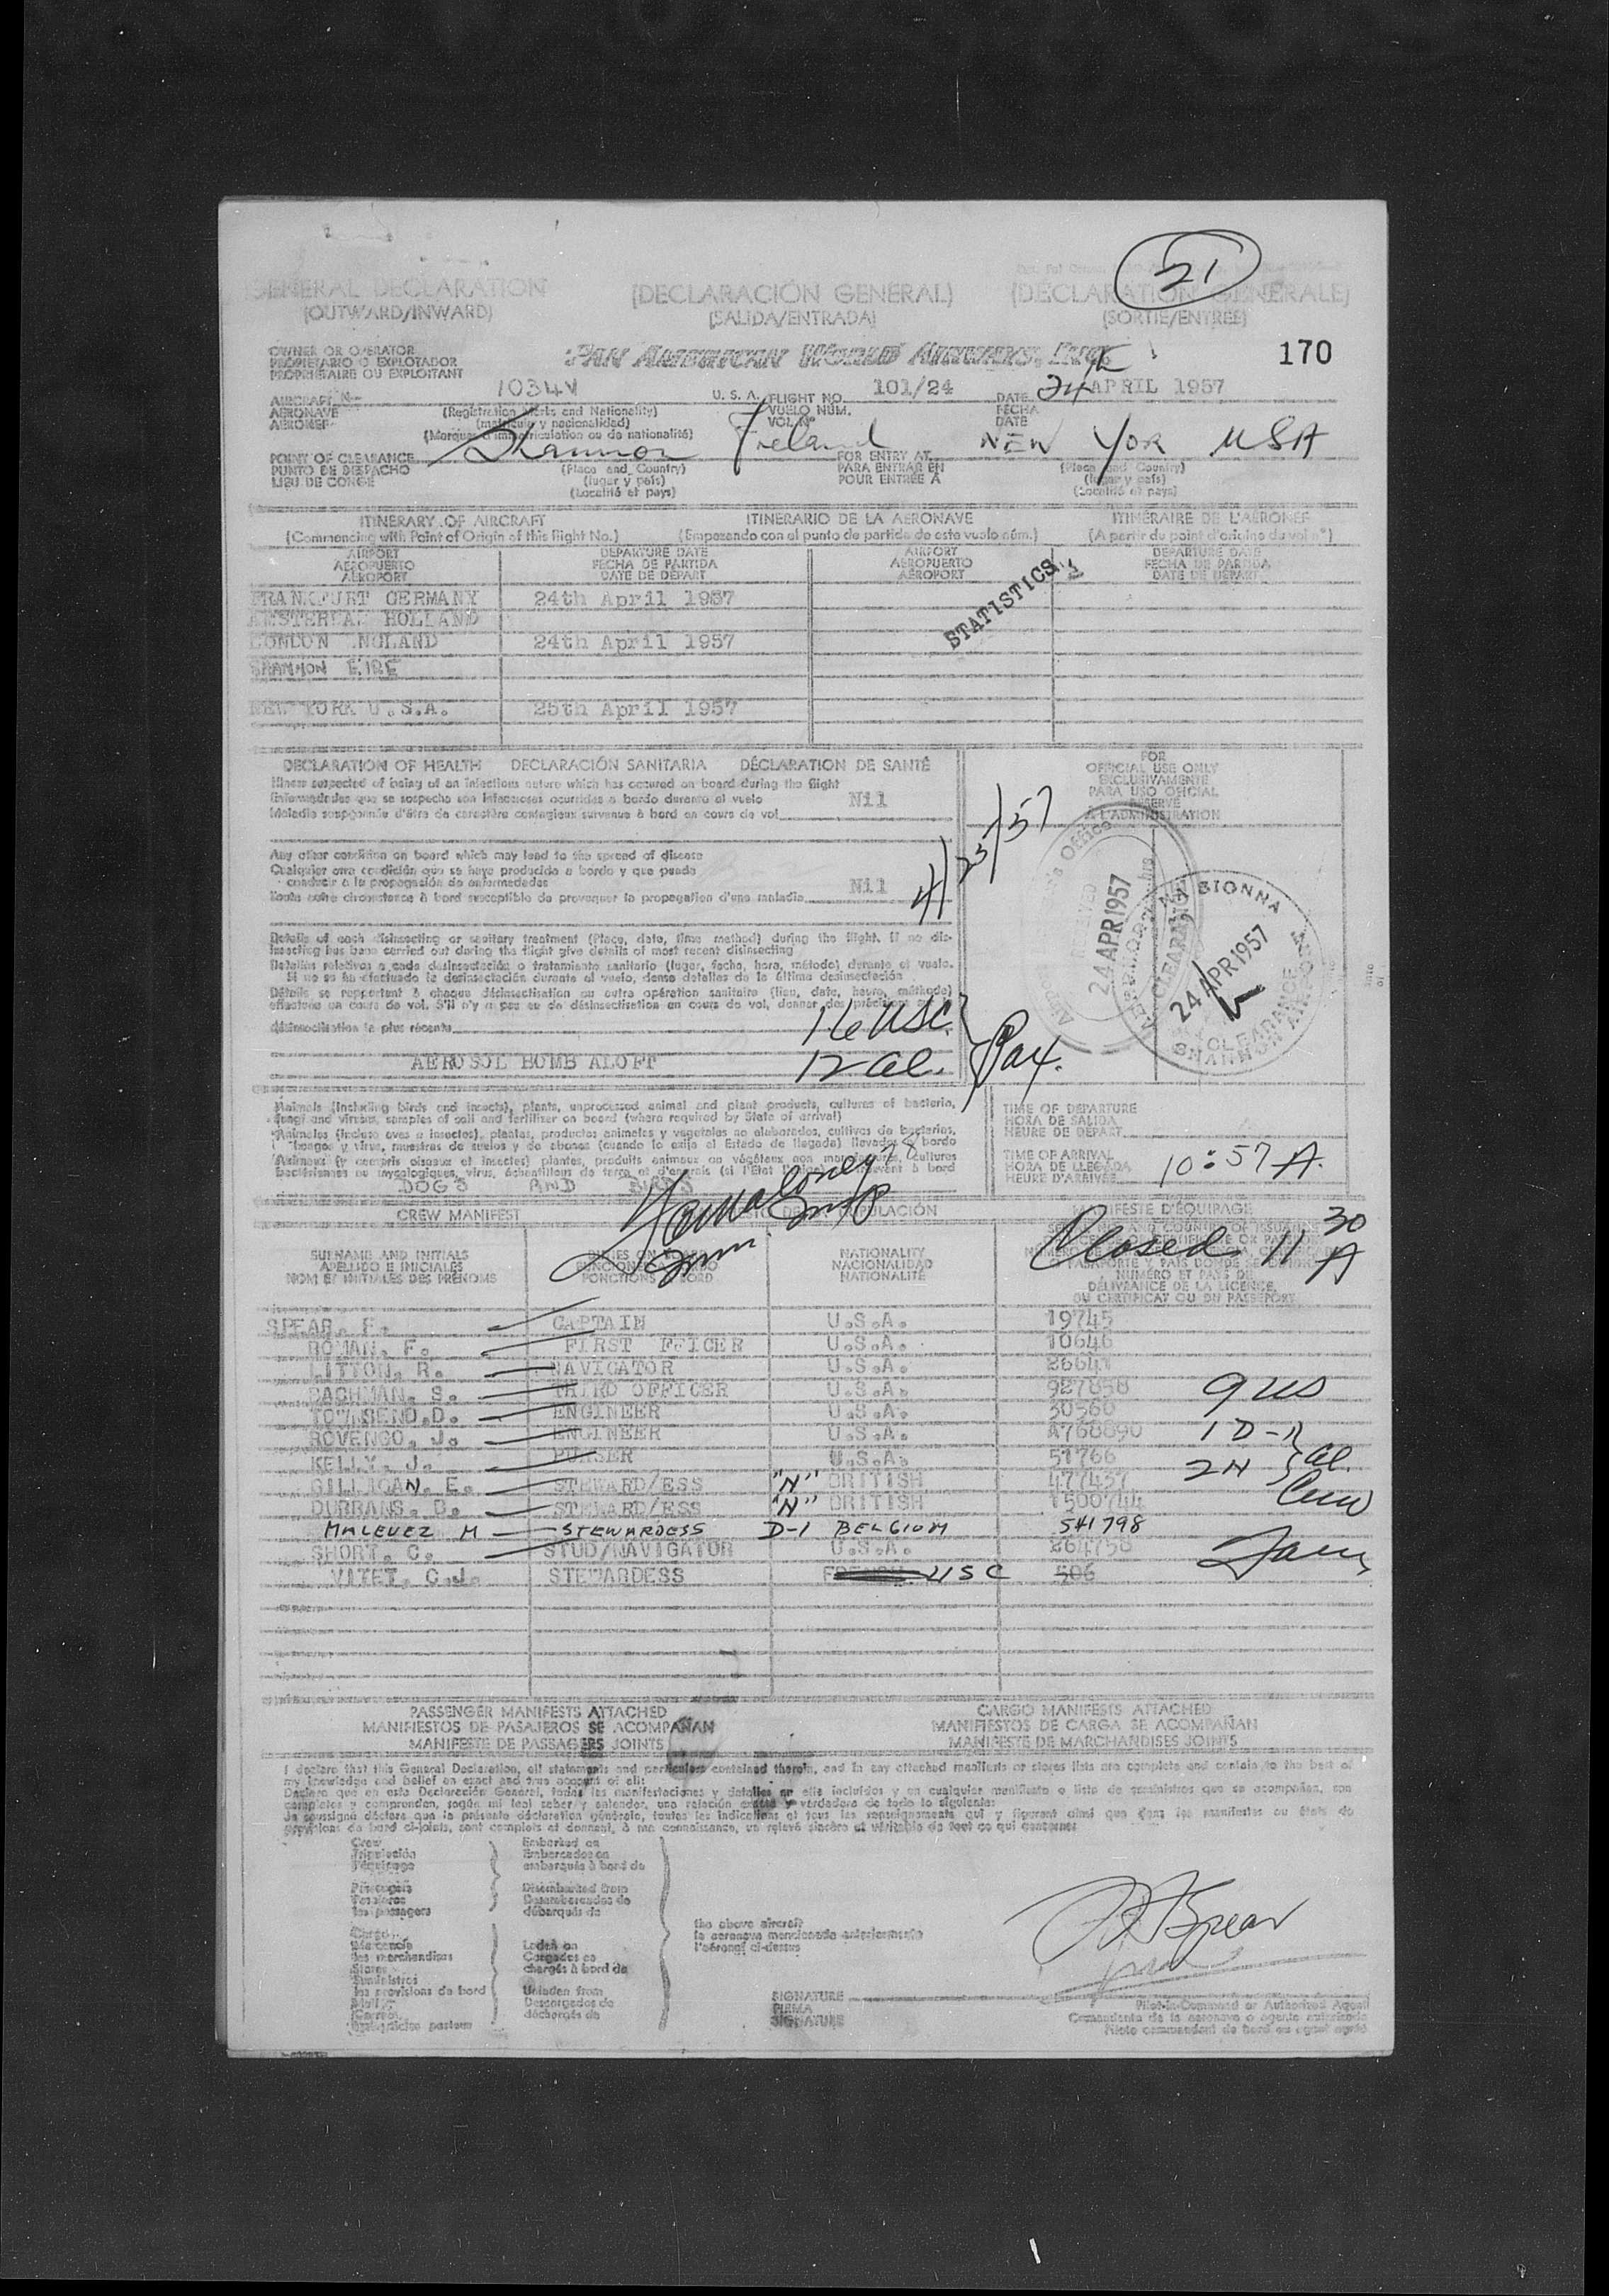 21
GENERAL DECLARATION (DECLARACIÓN GENERAL) (DECLARATION GENERALE)
(OUTWARD/INWARD) (SALIDA/ENTRADA) (SORTIE/ENTREE)
OWNER OR OPERATOR
PROPIETARIO O EXPLOTADOR
PROPRIÉTAIRE OU EXPLOITANT
PAN AMERICAN WORLD AIRWAYS, INC.
170
AIRCRAFT N- 1034V U. S. A. FLIGHT NO. 101/24 DATE 24 APRIL 1957
AERONAVE (Registration Marks and Nationality) VUELO NUM. FECHA
AERONEF (matrícula y nacionalidad) VOL Nº DATE
(Marques d'immatriculation ou de nationalité)
POINT OF CLEARANCE Shannon Ireland FOR ENTRY AT NEW YOR USA
PUNTO DE DESPACHO (Place and Country) PARA ENTRAR EN (Place and Country)
LIEU DE CONGE (lugar y país) POUR ENTRÉE A (lugar y país)
(Localité et pays) (Localité et pays)
ITINERARY OF AIRCRAFT ITINERARIO DE LA AERONAVE ITINÉRAIRE DE L'AÉRONEF
(Commencing with Point of Origin of this flight No.) (Empezando con el punto de partida de este vuelo núm.) (A partir du point d'origine du vol n°)
AIRPORT DEPARTURE DATE AIRPORT DEPARTURE DATE
AEROPUERTO FECHA DE PARTIDA AEROPUERTO FECHA DE PARTIDA
AÉROPORT DATE DE DÉPART AÉROPORT DATE DE DÉPART
FRANKFURT GERMANY 24th April 1957
AMSTERDAM HOLLAND
STATISTICS
LONDON NGLAND 24th April 1957
SHANNON EIRE
NEW YORK U.S.A. 25th April 1957
DECLARATION OF HEALTH DECLARACIÓN SANITARIA DÉCLARATION DE SANTÉ
Illness suspected of being of an infectious nature which has occured on board during the flight
Enfermedades que se sospecha son infecciosas ocurridas a bordo durante el vuelo Nil
Maladie soupçonnée d'être de caractère contagieux survenue à bord en cours de vol
FOR
OFFICIAL USE ONLY
EXCLUSIVAMENTE
PARA USO OFICIAL
RESERVÉ
A L'ADMINISTRATION
4/25/57
Any other condition on board which may lead to the spread of disease
Cualquier otra condición que se haya producido a bordo y que pueda
conducir a la propagación de enfermedades Nil
Toute autre circonstance à bord susceptible de provoquer la propagation d'une maladie
24 APR 1957
CLEARANCE
NA SIONNA
24 APR 1957
CLEARANCE
SHANNON AIRPORT
Details of each disinsecting or sanitary treatment (Place, date, time method) during the flight. If no dis-
insecting has been carried out during the flight give details of most recent disinsecting
Detalles relativos a cada desinsectación o tratamiento sanitario (lugar, fecha, hora, método) durante el vuelo.
Si no se ha efectuado la desinsectación durante el vuelo, dense detalles de la última desinsectación
Détails se rapportant à chaque désinsectisation ou autre opération sanitaire (lieu, date, heure, méthode)
effectuée en cours de vol. S'il n'y a pas eu de désinsectisation en cours de vol, donner des précisions sur la
désinsectisation la plus récente
16 USC.
12 al. } Pax.
AEROSOL BOMB ALOFT
Animals (including birds and insects), plants, unprocessed animal and plant products, cultures of bacteria,
fungi and viruses, samples of soil and fertilizer on board (where required by State of arrival)
Animales (incluso aves e insectos), plantas, productos animales y vegetales no elaborados, cultivos de bacterias,
hongos y virus, muestras de suelos y de abonos (cuando lo exija el Estado de llegada) llevados a bordo
Animaux (y compris oiseaux et insectes) plantes, produits animaux ou végétaux non manufacturés, cultures
DOGS AND BIRDS
TIME OF DEPARTURE
HORA DE SALIDA
HEURE DE DÉPART
TIME OF ARRIVAL
HORA DE LLEGADA 10:57 A.
HEURE D'ARRIVÉE
CREW MANIFEST MANIFESTE D'ÉQUIPAGE
Closed 11 30 A
SURNAME AND INITIALS NATIONALITY
APELLIDO E INICIALES NACIONALIDAD
NOM ET INITIALES DES PRÉNOMS NATIONALITÉ
NUMÉRO ET PAYS DE
DÉLIVRANCE DE LA LICENCE,
DU CERTIFICAT OU DU PASSEPORT
SPEAR. F. CAPTAIN U.S.A. 19745
ROMAN. F. FIRST FFICER U.S.A. 10646
LITTON. R. NAVIGATOR U.S.A. 26641
BACHMAN. S. THIRD OFFICER U.S.A. 927858 9 US
TOWNSEND.D. ENGINEER U.S.A. 30560
ROVENGO. J. ENGINEER U.S.A. A768890 1 D-1
KELLY. J. PURSER U.S.A. 51766 2 N } al.
GILLIGAN. E. STEWARD/ESS "N" BRITISH 477437 Crew
DURBANS. D. STEWARD/ESS "N" BRITISH 1500744
MALEVEZ M STEWARDESS D-1 BELGIUM 541798
SHORT. C. STUD/NAVIGATOR U.S.A. 264758
VITET. C.J. STEWARDESS FRENCH USC 506
PASSENGER MANIFESTS ATTACHED CARGO MANIFESTS ATTACHED
MANIFIESTOS DE PASAJEROS SE ACOMPAÑAN MANIFIESTOS DE CARGA SE ACOMPAÑAN
MANIFESTE DE PASSAGERS JOINTS MANIFESTE DE MARCHANDISES JOINTS
I declare that this General Declaration, all statements and particulars contained therein, and in any attached manifests or stores lists are complete and contain to the best of
my knowledge and belief an exact and true account of all:
Declaro que en esta Declaración General, todas las manifestaciones y detalles en ella incluídos y en cualquier manifiesto o lista de suministros que se acompañan, son
completos y comprenden, según mi leal saber y entender, una relación exacta y verdadera de todo lo siguiente:
Je soussigné déclare que la présente déclaration générale, toutes les indications et tous les renseignements qui y figurent ainsi que dans les manifestes ou états de
provisions de bord ci-joints, sont complets et donnent, à ma connaissance, un relevé sincère et véritable de tout ce qui concerne:
Crew Embarked on
Tripulación Embarcados en
l'équipage embarqués à bord de
Passengers Disembarked from
Pasajeros Desembarcados de
les passagers débarqués de
Cargo
Mercancía Laden on
les marchandises Cargados en
Stores chargés à bord de
Suministros
les provisions de bord Unladen from
Mail Descargados de
Correo déchargés de
the above aircraft
la aeronave mencionada anteriormente
l'aéronef ci-dessus
SIGNATURE
FIRMA
SIGNATURE
Pilot-in-Command or Authorized Agent
Comandante de la aeronave o agente autorizado
Pilote commandant de bord ou agent agréé